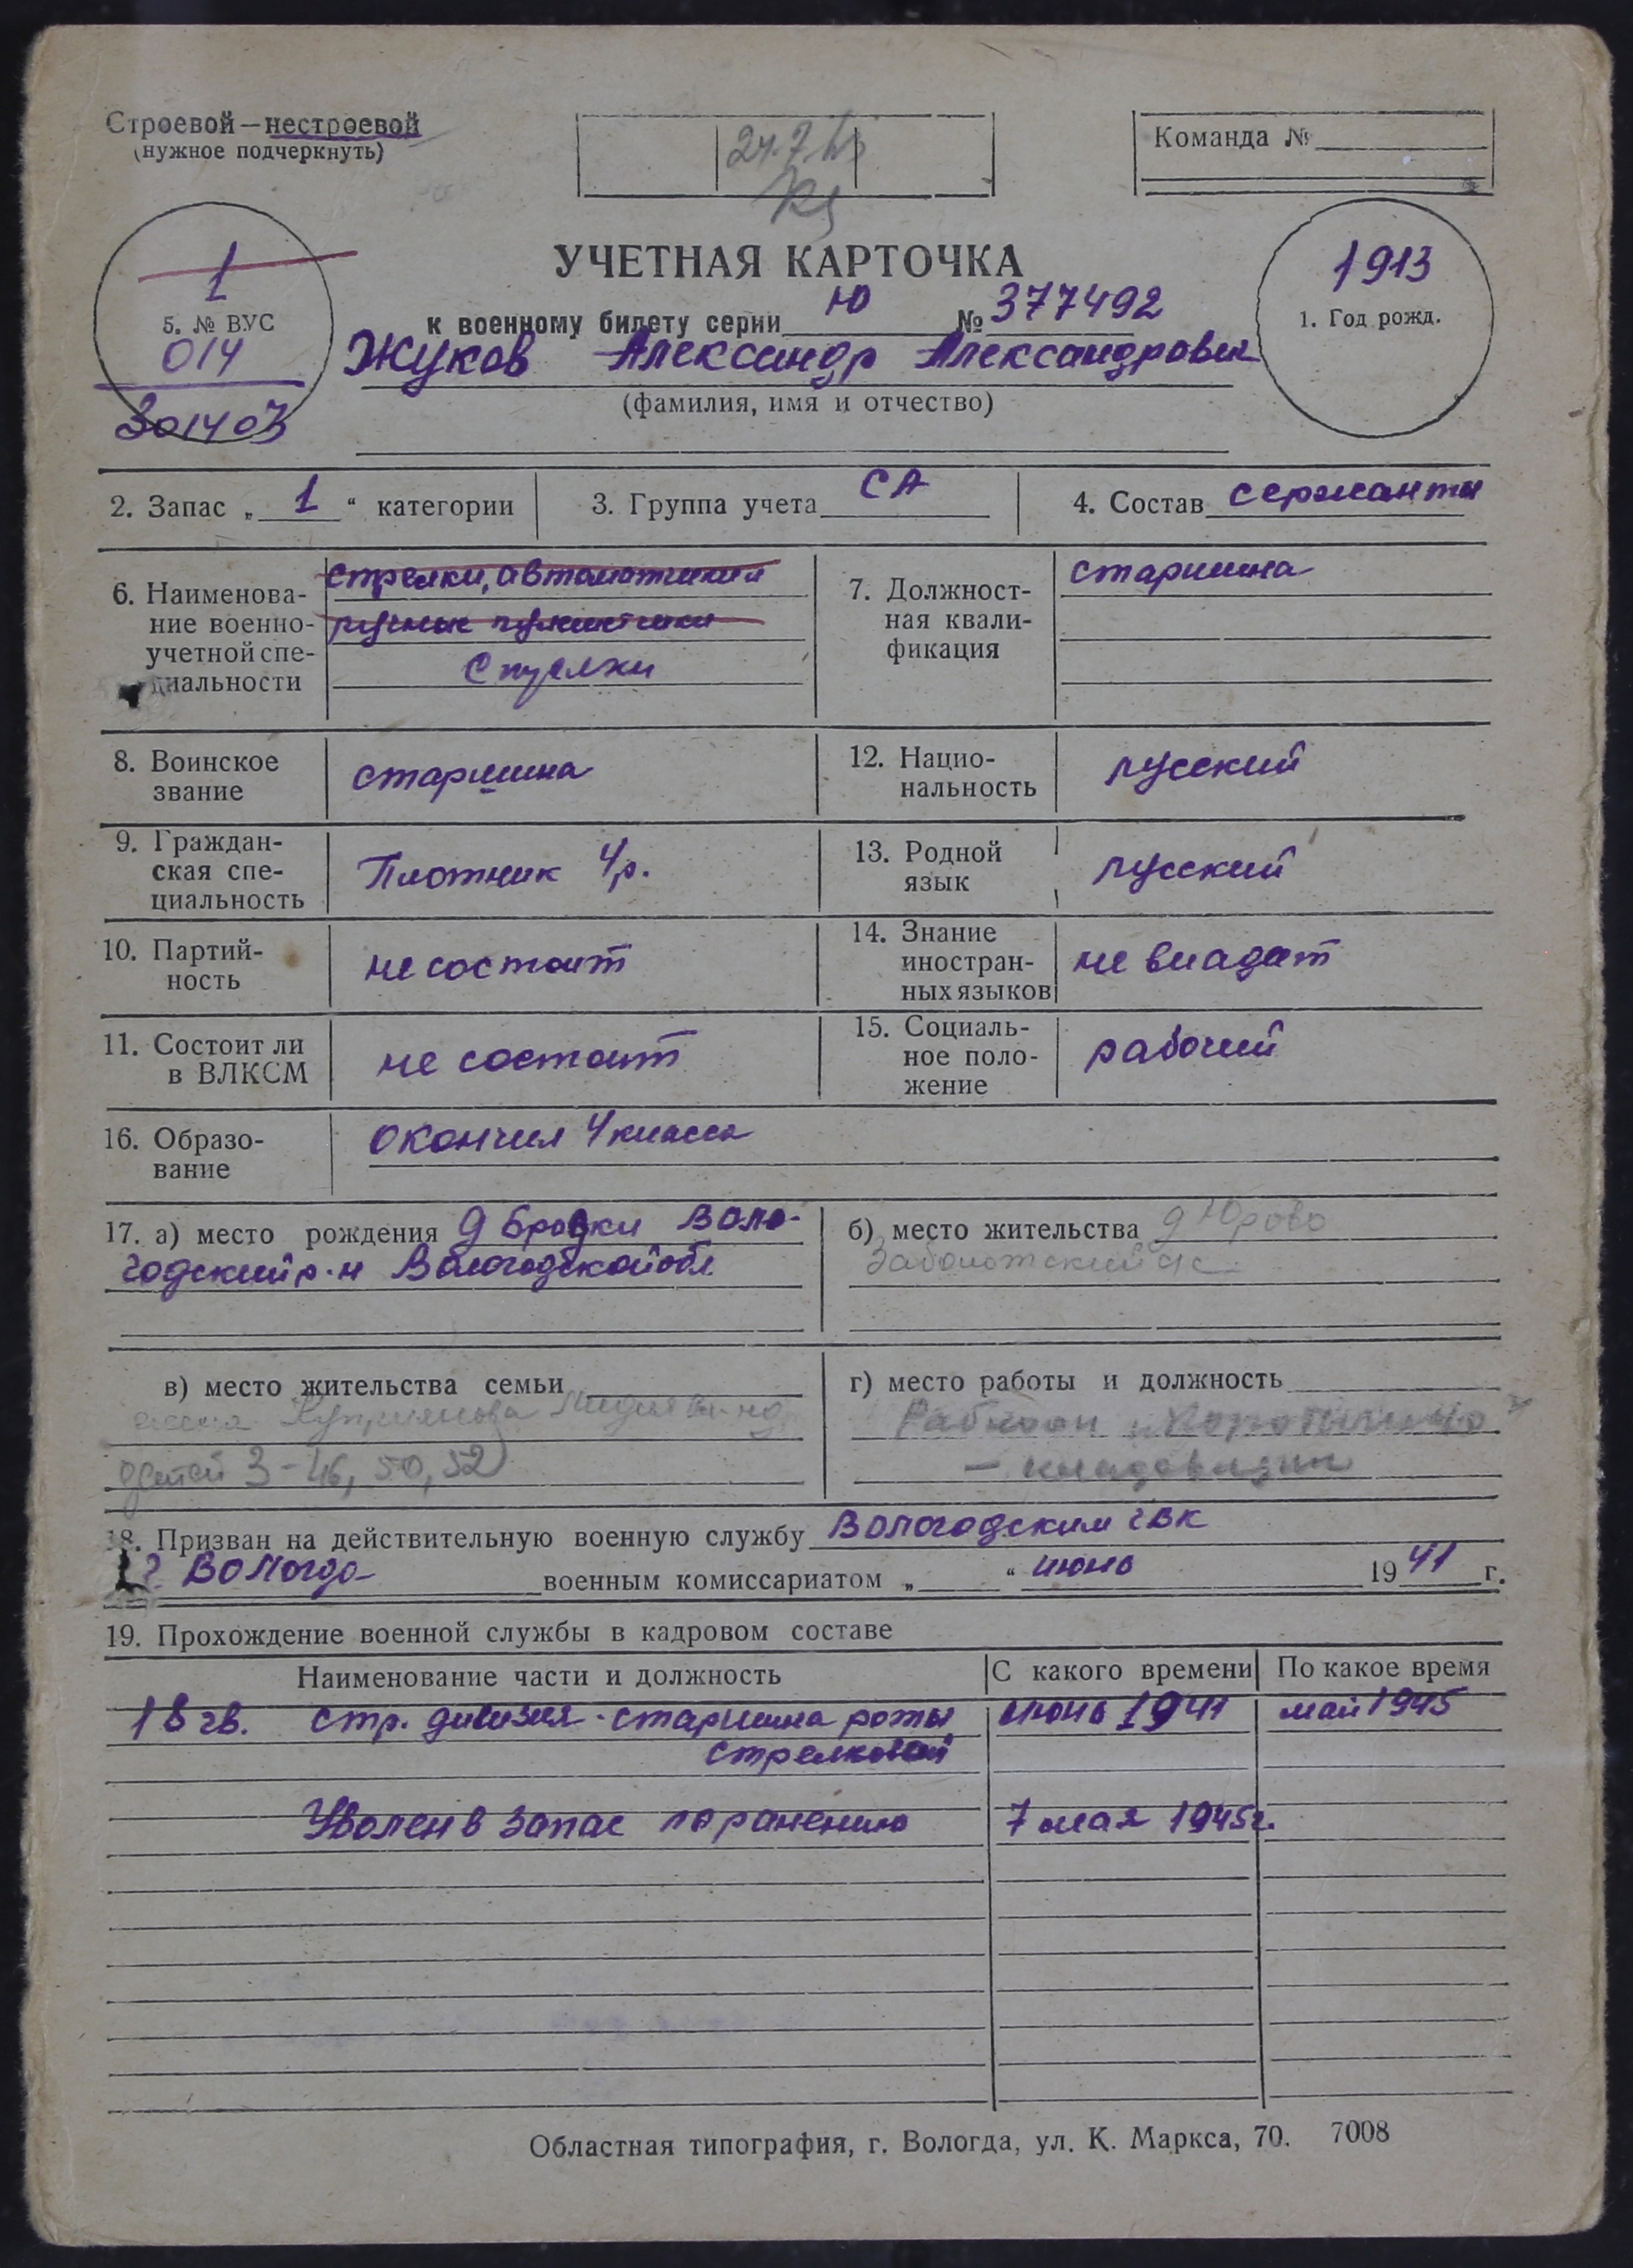 Строевой — нестроевой
(нужное подчеркнуть)
Команда №
УЧЕТНАЯ КАРТОЧКА
к военному билету серии Ю № 377492
1
5. № ВУС
014
301403
1913
1. Год рожд.
Жуков Александр Александрович
(фамилия, имя и отчество)
2. Запас „ 1 “ категории
3. Группа учета СА
4. Состав сержанты
6. Наименова-
ние военно-
учетной спе-
циальности
стрелки, автоматчики
ручные пулеметчики
Стрелки
7. Должност-
ная квали-
фикация
старшина
8. Воинское
звание
старшина
12. Нацио-
нальность
русский
9. Граждан-
ская спе-
циальность
Плотник 4р.
13. Родной
язык
русский
10. Партий-
ность
не состоит
14. Знание
иностран-
ных языков
не владеет
11. Состоит ли
в ВЛКСМ
не состоит
15. Социаль-
ное поло-
жение
рабочий
16. Образо-
вание
окончил 4 класса
17. а) место рождения д Бровки Воло-
годский р-н Вологодской обл
б) место жительства д Юрово
Заболотский с/с
в) место жительства семьи
жена Куприянова Лидия
детей 3 - 46, 50, 52
г) место работы и должность
Рабкооп
- кладовщик
18. Призван на действительную военную службу Вологодским ГВК
г Вологда военным комиссариатом „ “ июнь 1941 г.
19. Прохождение военной службы в кадровом составе
Наименование части и должность
С какого времени
По какое время
18 гв. стр. дивизия - старшина роты июнь 1941 май 1945
стрелковой
Уволен в запас по ранению 7 мая 1945г.
Областная типография, г. Вологда, ул. К. Маркса, 70. 7008